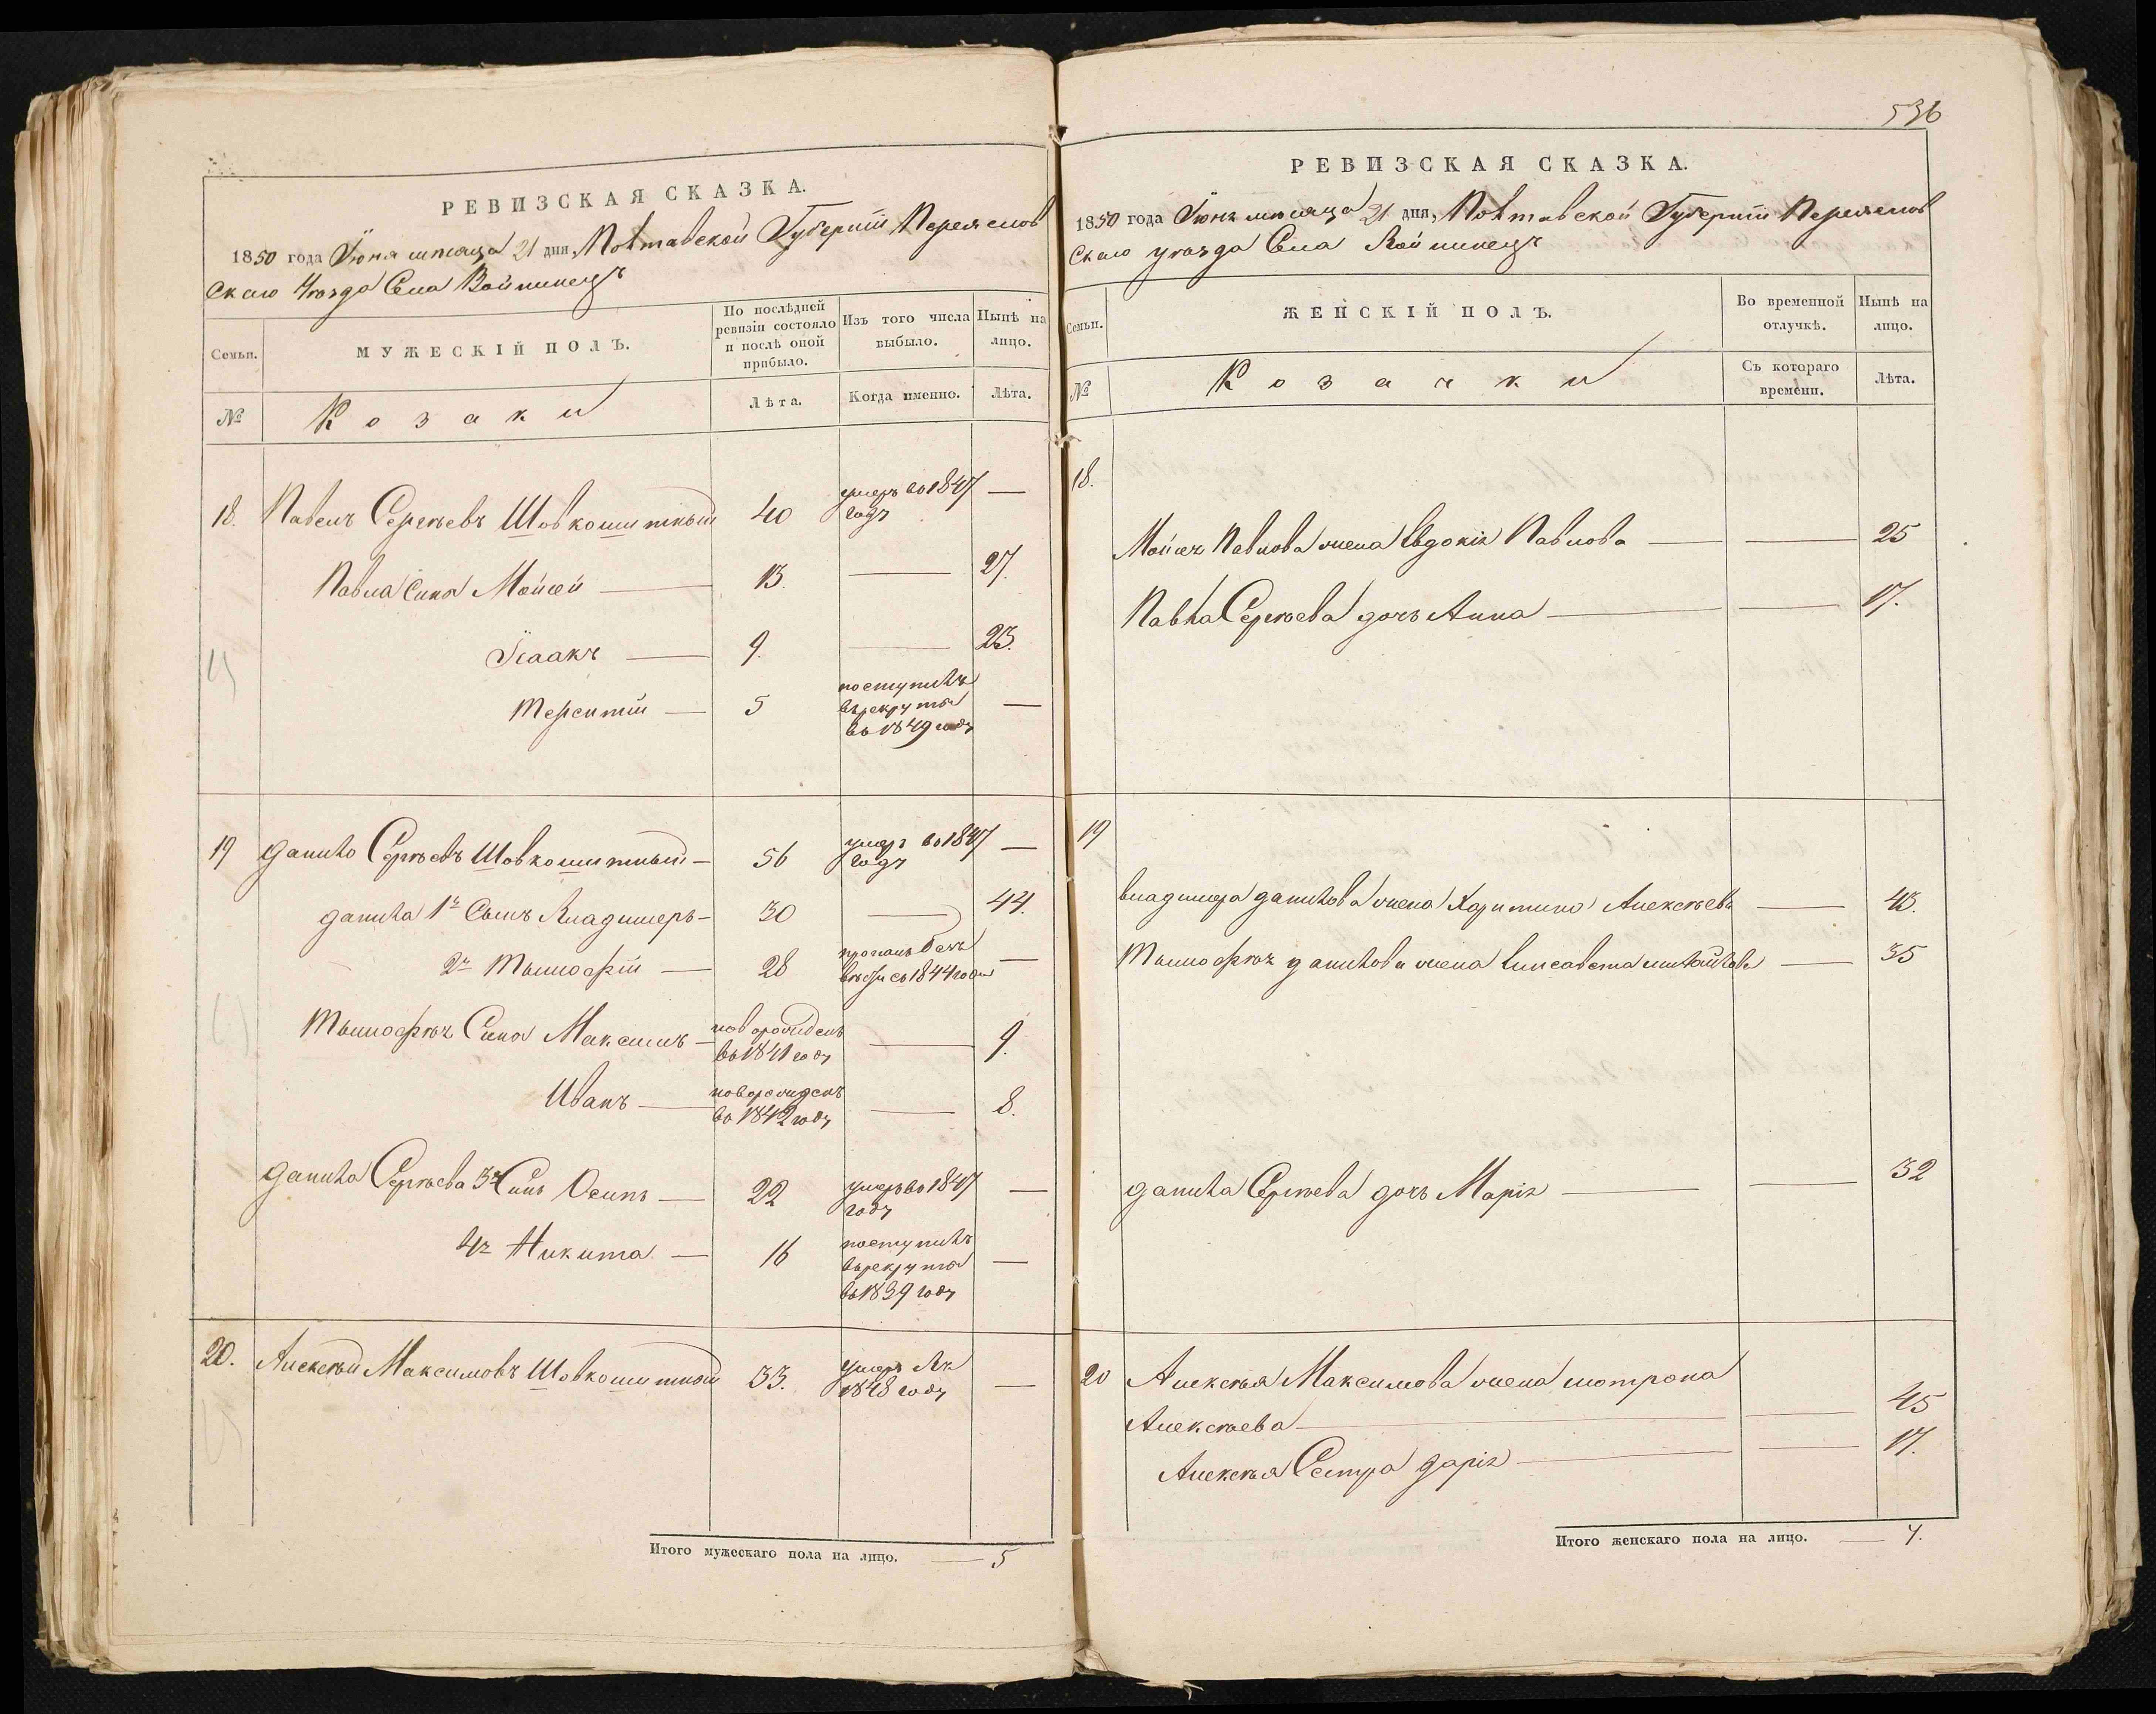 РЕВИЗСКАЯ СКАЗКА.
1850 года Іюня месяца 21 дня, Полтавской Губерніи Переяслов
Скаго Уѣзда Села Войтинецъ
Семьи.
МУЖЕСКІЙ ПОЛЪ.
По послѣдней
ревизіи состояло
и послѣ оной
прибыло.
Изъ того числа
выбыло.
Нынѣ на
лицо.
№
Козаки
Лѣта.
Когда именно.
Лѣта.
18. Павелъ Сергѣевъ Шовкошитный 40 умеръ во 1847 годѣ —
Павла Сина Мойсей — 13. — 27.
Ісаакъ — 9. — 23.
Терентій — 5 поступилъ
въ рекрута
во 1849 годѣ —
19 Данило Сергѣевъ Шовкошитный — 56 умеръ во 1847 годѣ —
Данила 1й Сынъ Владимеръ — 30 — 44.
2й Тымофій — 28 пропалъ безъ
вѣсти съ 1844 года —
Тымофѣя Сина Максимъ — новорожденъ
во 1841 годѣ — 9.
Иванъ — новорожденъ
во 1842 годѣ — 8.
Данила Сергѣева 3й Синъ Осипъ — 22 умеръ во 1847 годѣ —
4й Никита — 16 поступилъ
въ рекрута
во 1839 годѣ —
20. Алексѣй Максимовъ Шовкошитной 33. умеръ
1848 годѣ —
Итого мужескаго пола на лицо. — 5
536
РЕВИЗСКАЯ СКАЗКА.
1850 года Іюня месяца 21 дня, Полтавской Губерніи Переяслов
Скаго уѣзда Села Войтинецъ
Семьи.
ЖЕНСКІЙ ПОЛЪ.
Во временной
отлучкѣ.
Нынѣ на
лицо.
№
Козачки
Съ котораго
времени.
Лѣта.
18.
Мойсея Павлова жена Евдокія Павлова — — 25
Павла Сергѣева дочь Анна — — 17.
19
Владимера Данилова жена Харитина Алексѣева — 43.
Тымофѣя Данилова жена Елисавета Михайлова — 35
Данила Сергѣева дочь Марія — — 32
20 Алексѣя Максимова жена Мотрона
Алексѣева — — 45
Алексѣя Сестра Дарія — — 17.
Итого женскаго пола на лицо. — 7.